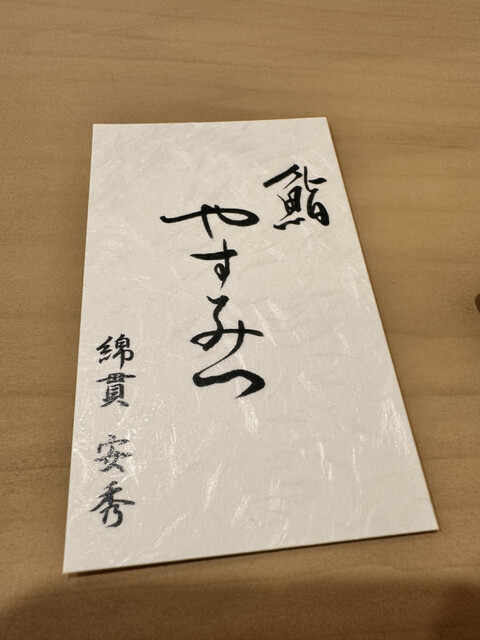 鮨
やすみつ
綿貫 安秀